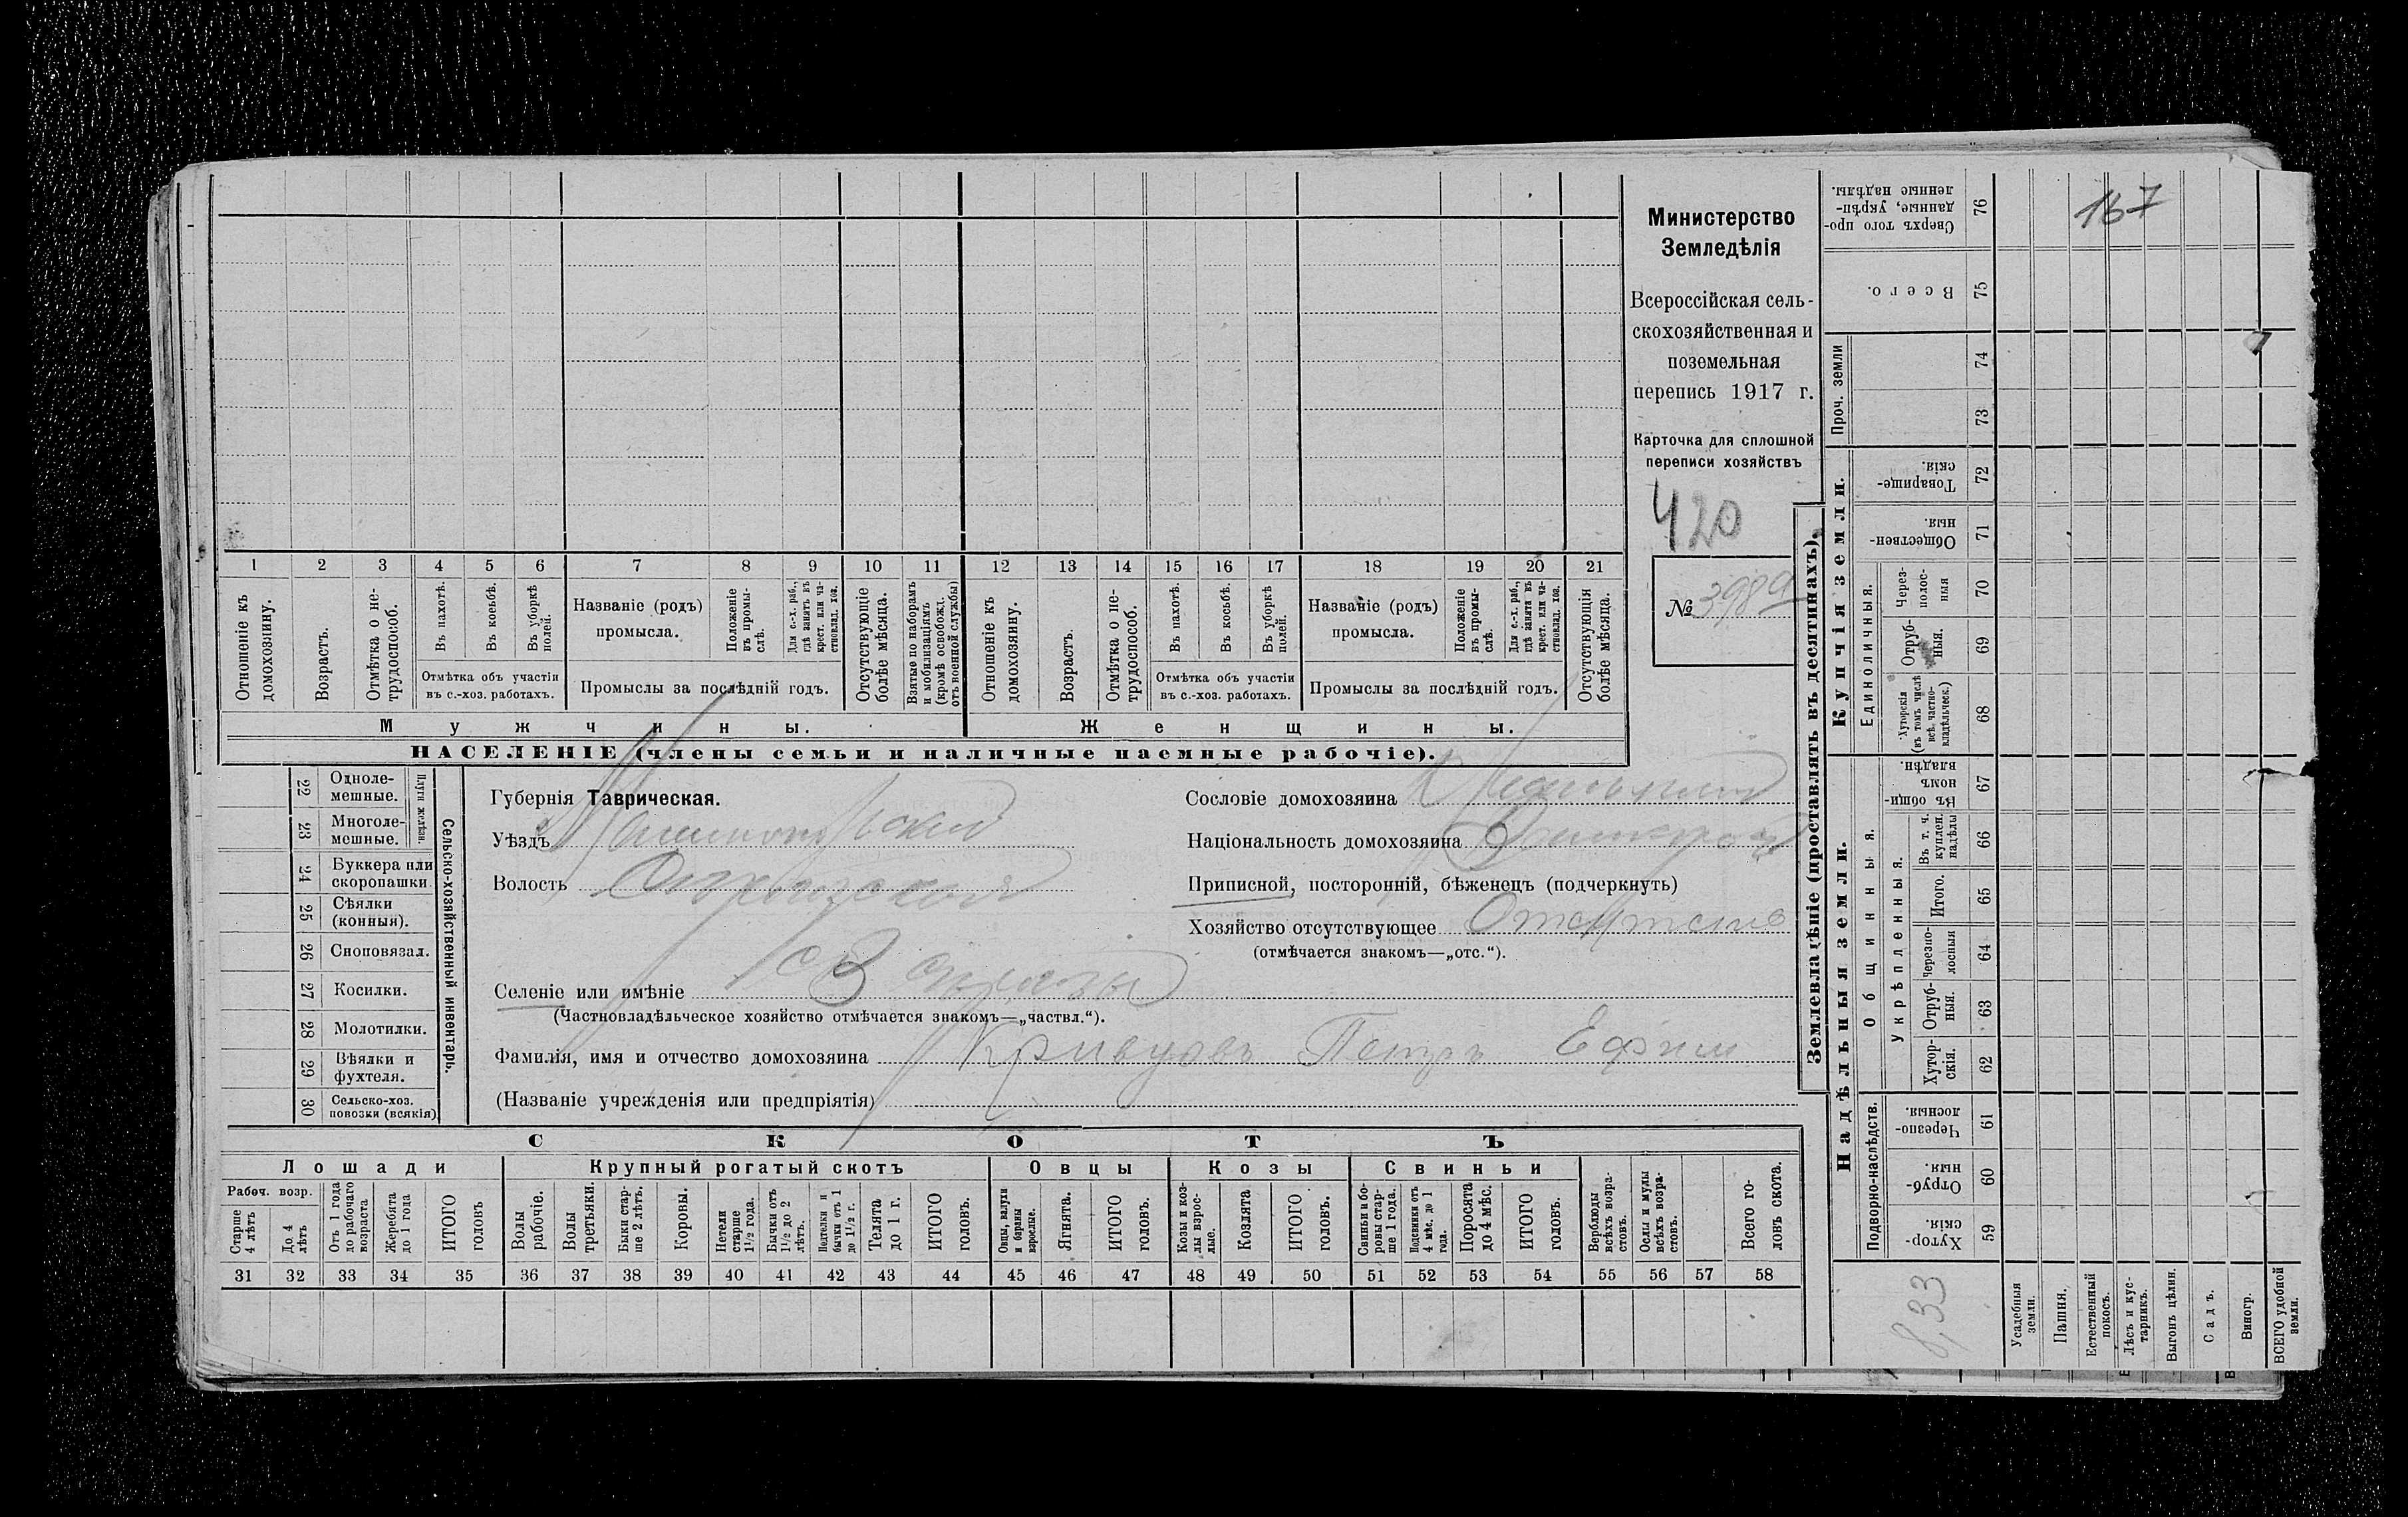 1 2 3 4 5 6 7 8 9 10 11 12 13 14 15 16 17 18 19 20 21
Отношеніе къ домохозяину.
Возрастъ.
Отмѣтка о не-
трудоспособ.
Въ пахотѣ.
Въ косьбѣ.
Въ уборкѣ
полей.
Отмѣтка объ участіи
въ с.-хоз. работахъ.
Названіе (родъ)
промысла.
Положеніе
въ промы-
слѣ.
Для с.-х. раб.,
гдѣ занятъ въ
крест. или ча-
стновлад. хоз.
Промыслы за послѣдній годъ.
Отсутствующіе
болѣе мѣсяца.
Взятые по наборамъ
и мобилизаціямъ
(кромѣ освобожд.
отъ военной службы)
Отношеніе къ
домохозяину.
Возрастъ.
Отмѣтка о не-
трудоспособ.
Въ пахотѣ.
Въ косьбѣ.
Въ уборкѣ
полей.
Отмѣтка объ участіи
въ с.-хоз. работахъ.
Названіе (родъ)
промысла.
Положеніе
въ промы-
слѣ.
Для с.-х. раб.,
гдѣ занята въ
крест. или ча-
стновлад. хоз.
Промыслы за послѣдній годъ.
Отсутствующія
болѣе мѣсяца.
Мужчины.
Женщины.
НАСЕЛЕНІЕ (члены семьи и наличные наемные рабочіе).
Министерство
Земледѣлія
Всероссійская сель-
скохозяйственная и
поземельная
перепись 1917 г.
Карточка для сплошной
переписи хозяйствъ
420
№ 3989
22 Одноле-
мешные.
23 Многоле-
мешные.
Плуги желѣзн.
24 Буккера или
скоропашки
25 Сѣялки
(конныя).
26 Сноповязал.
27 Косилки.
28 Молотилки.
29 Вѣялки и
фухтеля.
30 Сельско-хоз.
повозки (всякія)
Сельско-хозяйственный инвентарь.
Губернія Таврическая.
Уѣздъ
Волость
Селеніе или имѣніе
(Частновладѣльческое хозяйство отмѣчается знакомъ—„частвл.“).
Фамилія, имя и отчество домохозяина Петръ Ефим
(Названіе учрежденія или предпріятія)
Сословіе домохозяина
Національность домохозяина
Приписной, посторонній, бѣженецъ (подчеркнуть)
Хозяйство отсутствующее
(отмѣчается знакомъ—„отс.“).
СКОТЪ
Лошади
Крупный рогатый скотъ
Овцы
Козы
Свиньи
Рабоч. возр.
Старше
4 лѣтъ
До 4
лѣтъ
Отъ 1 года
до рабочаго
возраста
Жеребята
до 1 года
ИТОГО
головъ
Волы
рабочіе.
Волы
третьяки.
Быки стар-
ше 2 лѣтъ.
Коровы.
Нетели
старше
1½ года.
Бычки отъ
1½ до 2
лѣтъ.
Подтелки и
бычки отъ 1
до 1½ г.
Телята
до 1 г.
ИТОГО
головъ.
Овцы, валухи
и бараны
взрослые.
Ягнята.
ИТОГО
головъ.
Козы и коз-
лы взрос-
лые.
Козлята
ИТОГО
головъ.
Свиньи и бо-
ровы стар-
ше 1 года.
Подсвинки отъ
4 мѣс. до 1
года.
Поросята
до 4 мѣс.
ИТОГО
головъ.
Верблюды
всѣхъ возра-
стовъ.
Ослы и мулы
всѣхъ возра-
стовъ.
Всего го-
ловъ скота.
31 32 33 34 35 36 37 38 39 40 41 42 43 44 45 46 47 48 49 50 51 52 53 54 55 56 57 58
Землевладѣніе (проставлять въ десятинахъ).
Купчія земли.
Надѣльныя земли.
Проч. земли
Единоличныя.
Общинныя.
Укрѣпленныя.
Подворно-наслѣдств.
Сверхъ того про-
данные, укрѣп-
ленные надѣлы. 76
Всего. 75
74
73
Товарище-
скія. 72
Обществен-
ныя. 71
Через-
полос-
ныя 70
Отруб-
ныя. 69
Хуторскія
(въ томъ числѣ
всѣ частно-
владѣльческ.) 68
Въ общин-
номъ
владѣн. 67
Въ т. ч.
куплен.
надѣлы 66
Итого. 65
Черезпо-
лосныя 64
Отруб-
ныя. 63
Хутор-
скія. 62
Черезпо-
лосныя. 61
Отруб-
ныя. 60
Хутор-
скія. 59
167
833
Усадебныя
земли.
Пашня.
Естественный
покосъ.
Лѣсъ и кус-
тарникъ.
Выгонъ цѣлин.
Садъ.
Виногр.
ВСЕГО удобной
земли.